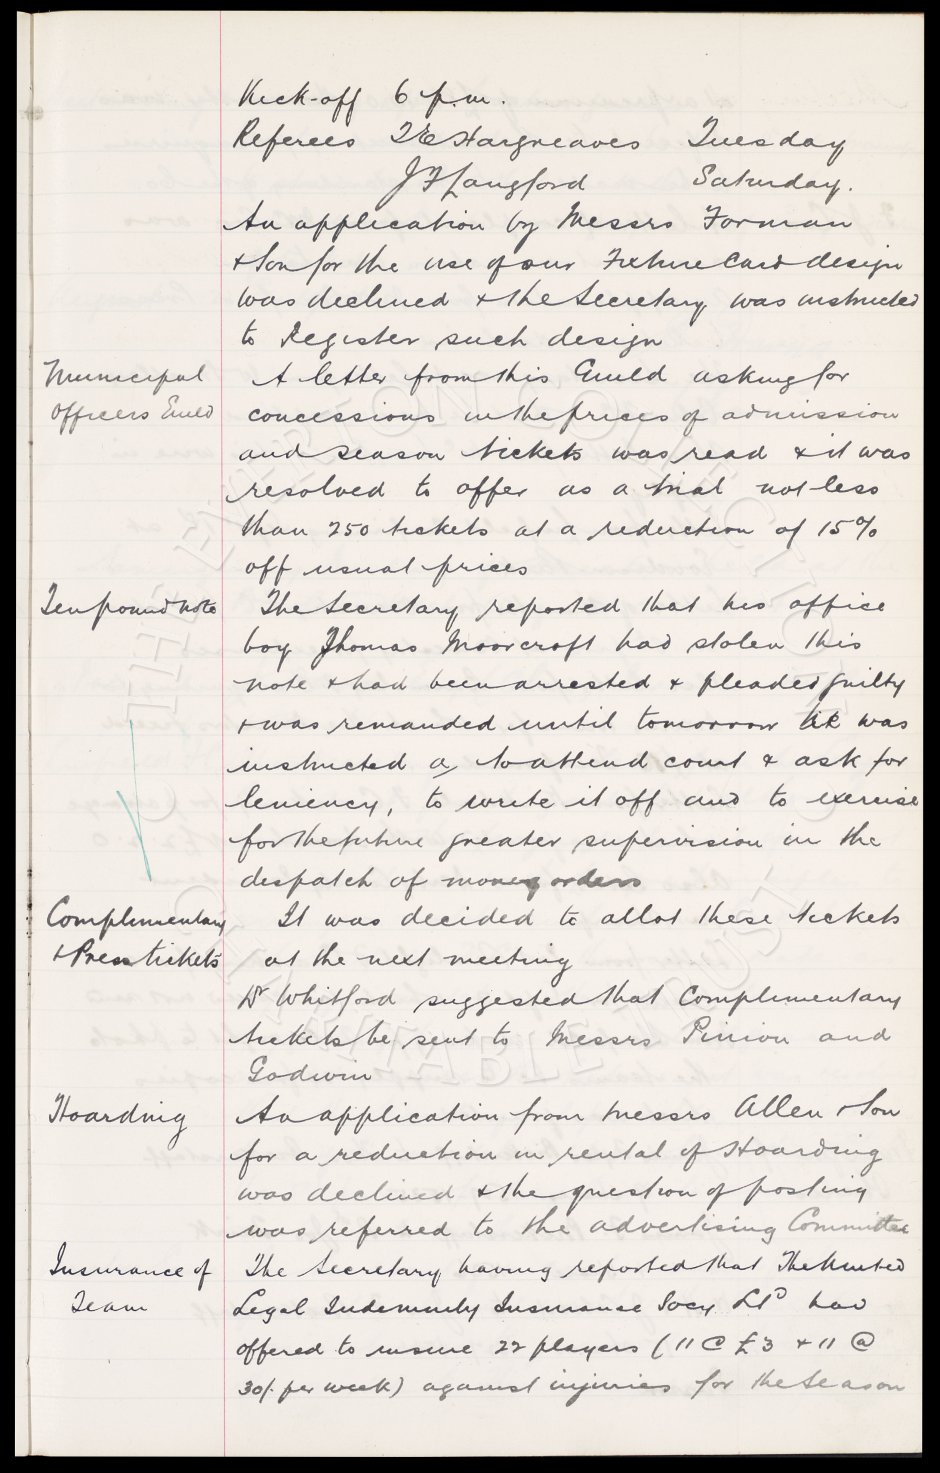 Kick-off 6 p.m.
Referees T E Hargreaves Tuesday
J T Langford Saturday.
An application by Messrs Forman
+ Son for the use of our Fixture Card design
was declined + the Secretary was instructed
to Register such design
Municipal
Officers Guild
A letter from this Guild asking for
concessions in the prices of admission
and season tickets was read + it was
resolved to offer as a trial not less
than 250 tickets at a reduction of 15%
off usual prices
Ten pound note
The Secretary reported that his office
boy Thomas Moorcroft had stolen this
note + had been arrested + pleaded guilty
+ was remanded until tomorrow He was
instructed to attend court + ask for
leniency, to write it off and to exercise
for the future greater supervision in the
despatch of money orders
Complimentary
+ Press tickets
It was decided to allot these tickets
at the next meeting
Dr Whitford suggested that Complimentary
tickets be sent to Messrs Pinion and
Godwin
Hoarding
An application from Messrs Allen + Son
for a reduction in rental of Hoarding
was declined + the question of posting
was referred to the advertising Committee
Insurance of
Team
The Secretary having reported that The United
Legal Indemnity Insurance Socy Ltd had
offered to insure 22 players (11 @ £3 + 11 @
30/- per week) against injuries for the Season